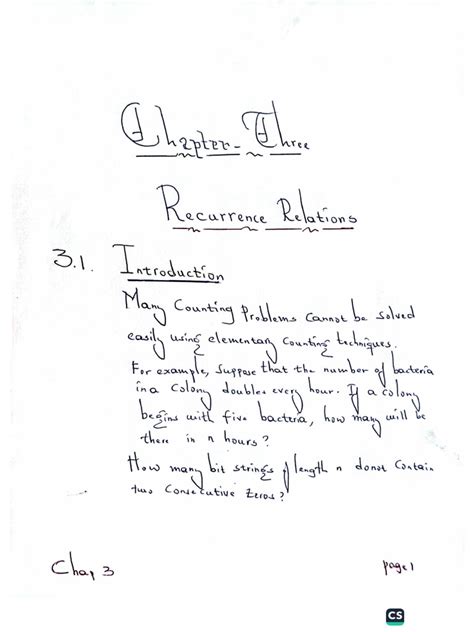 Chapter-Three
Recurrence Relations
3.1. Introduction
Many Counting Problems Cannot be solved
easily using elementary counting techniques.
For example, Suppose that the number of bacteria
in a Colony doubles every hour. If a colony
begins with five bacteria, how many will be
there in n hours?
How many bit strings of length n donot Contain
two Consecutive Zeros?
Chap 3
page 1
CS